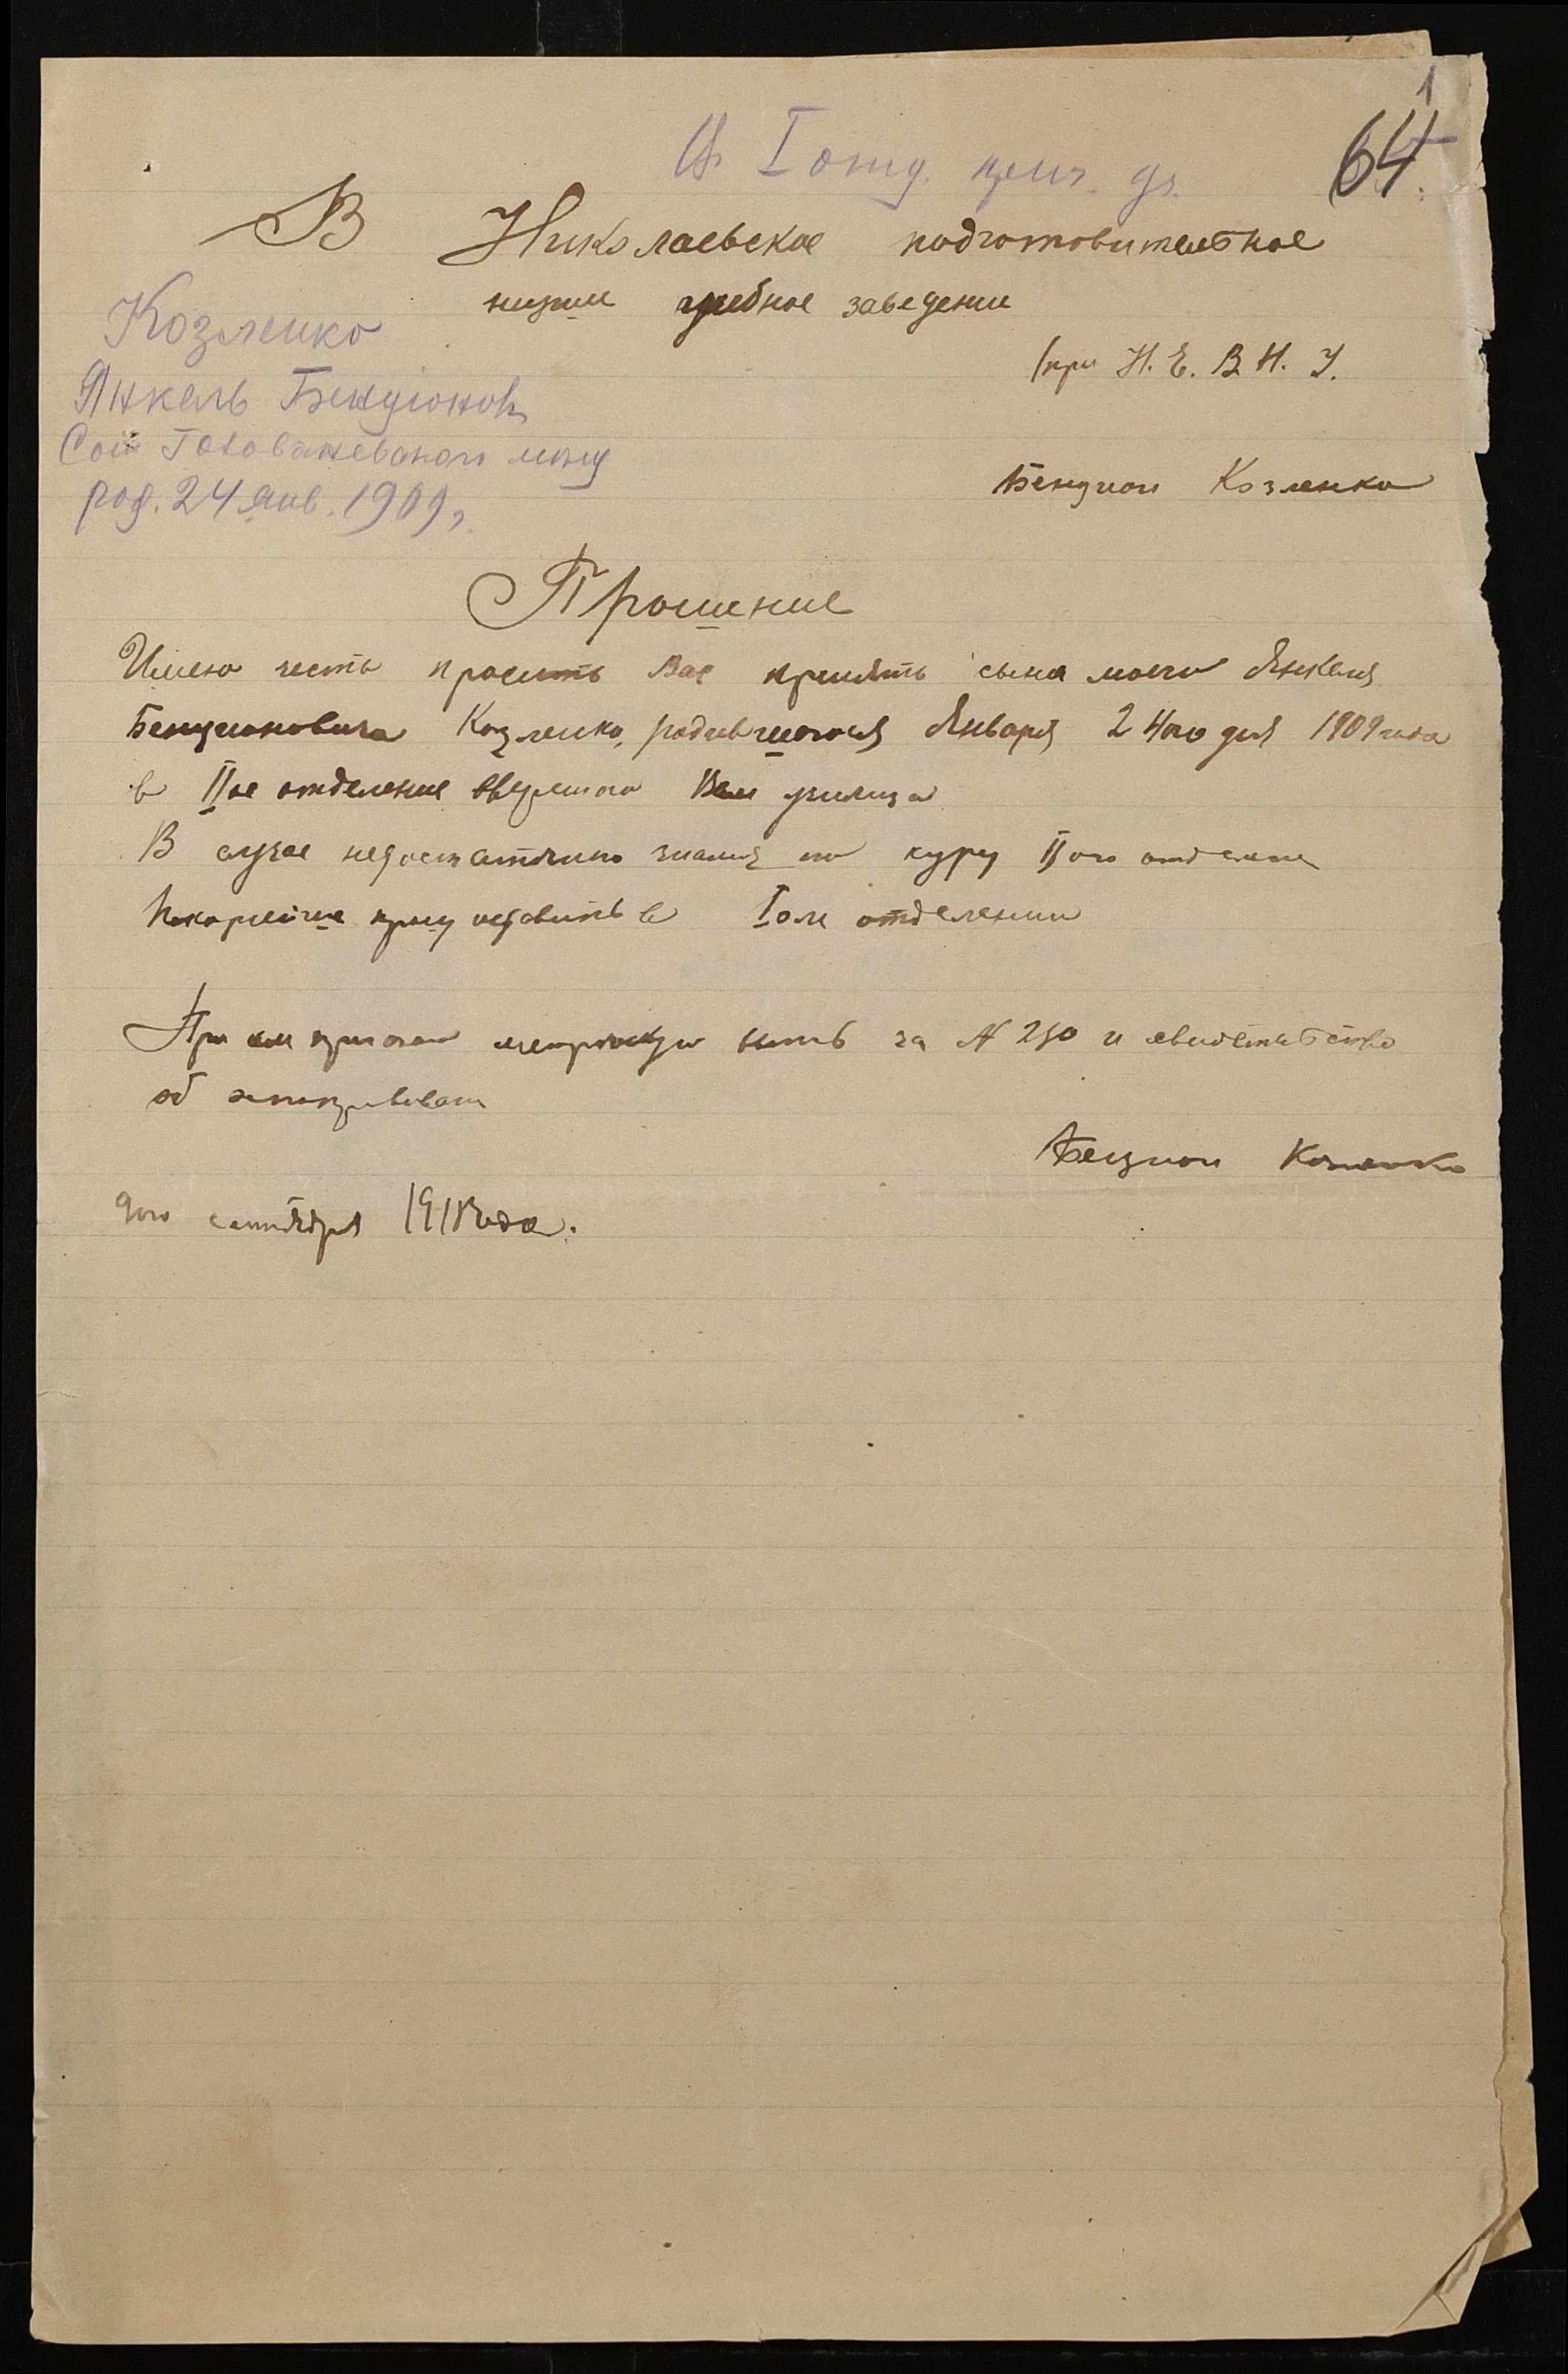 1
64
I отд.
В Николаевское подготовительное
низшее учебное заведение
(при Н. Е. В. Н. У.
Козленко
Янкель Бенционов
Сын
род. 24 янв. 1909 г.
Бенцион Козленко
Прошение
Имею честь просить Вас принять сына моего Янкеля
Бенционовича Козленко, родившагося Января 24го дня 1909 года
в IIое отделение вверенного Вам училища
В случае недостаточно знания по курсу IIого отделения
Покорнейше прошу оставить в Iом отделении
При сем прилагаю метрическую выпись за № 250 и свидетельство
об оспопрививании
Бенцион Козленко
9ого сентября 1918 года.